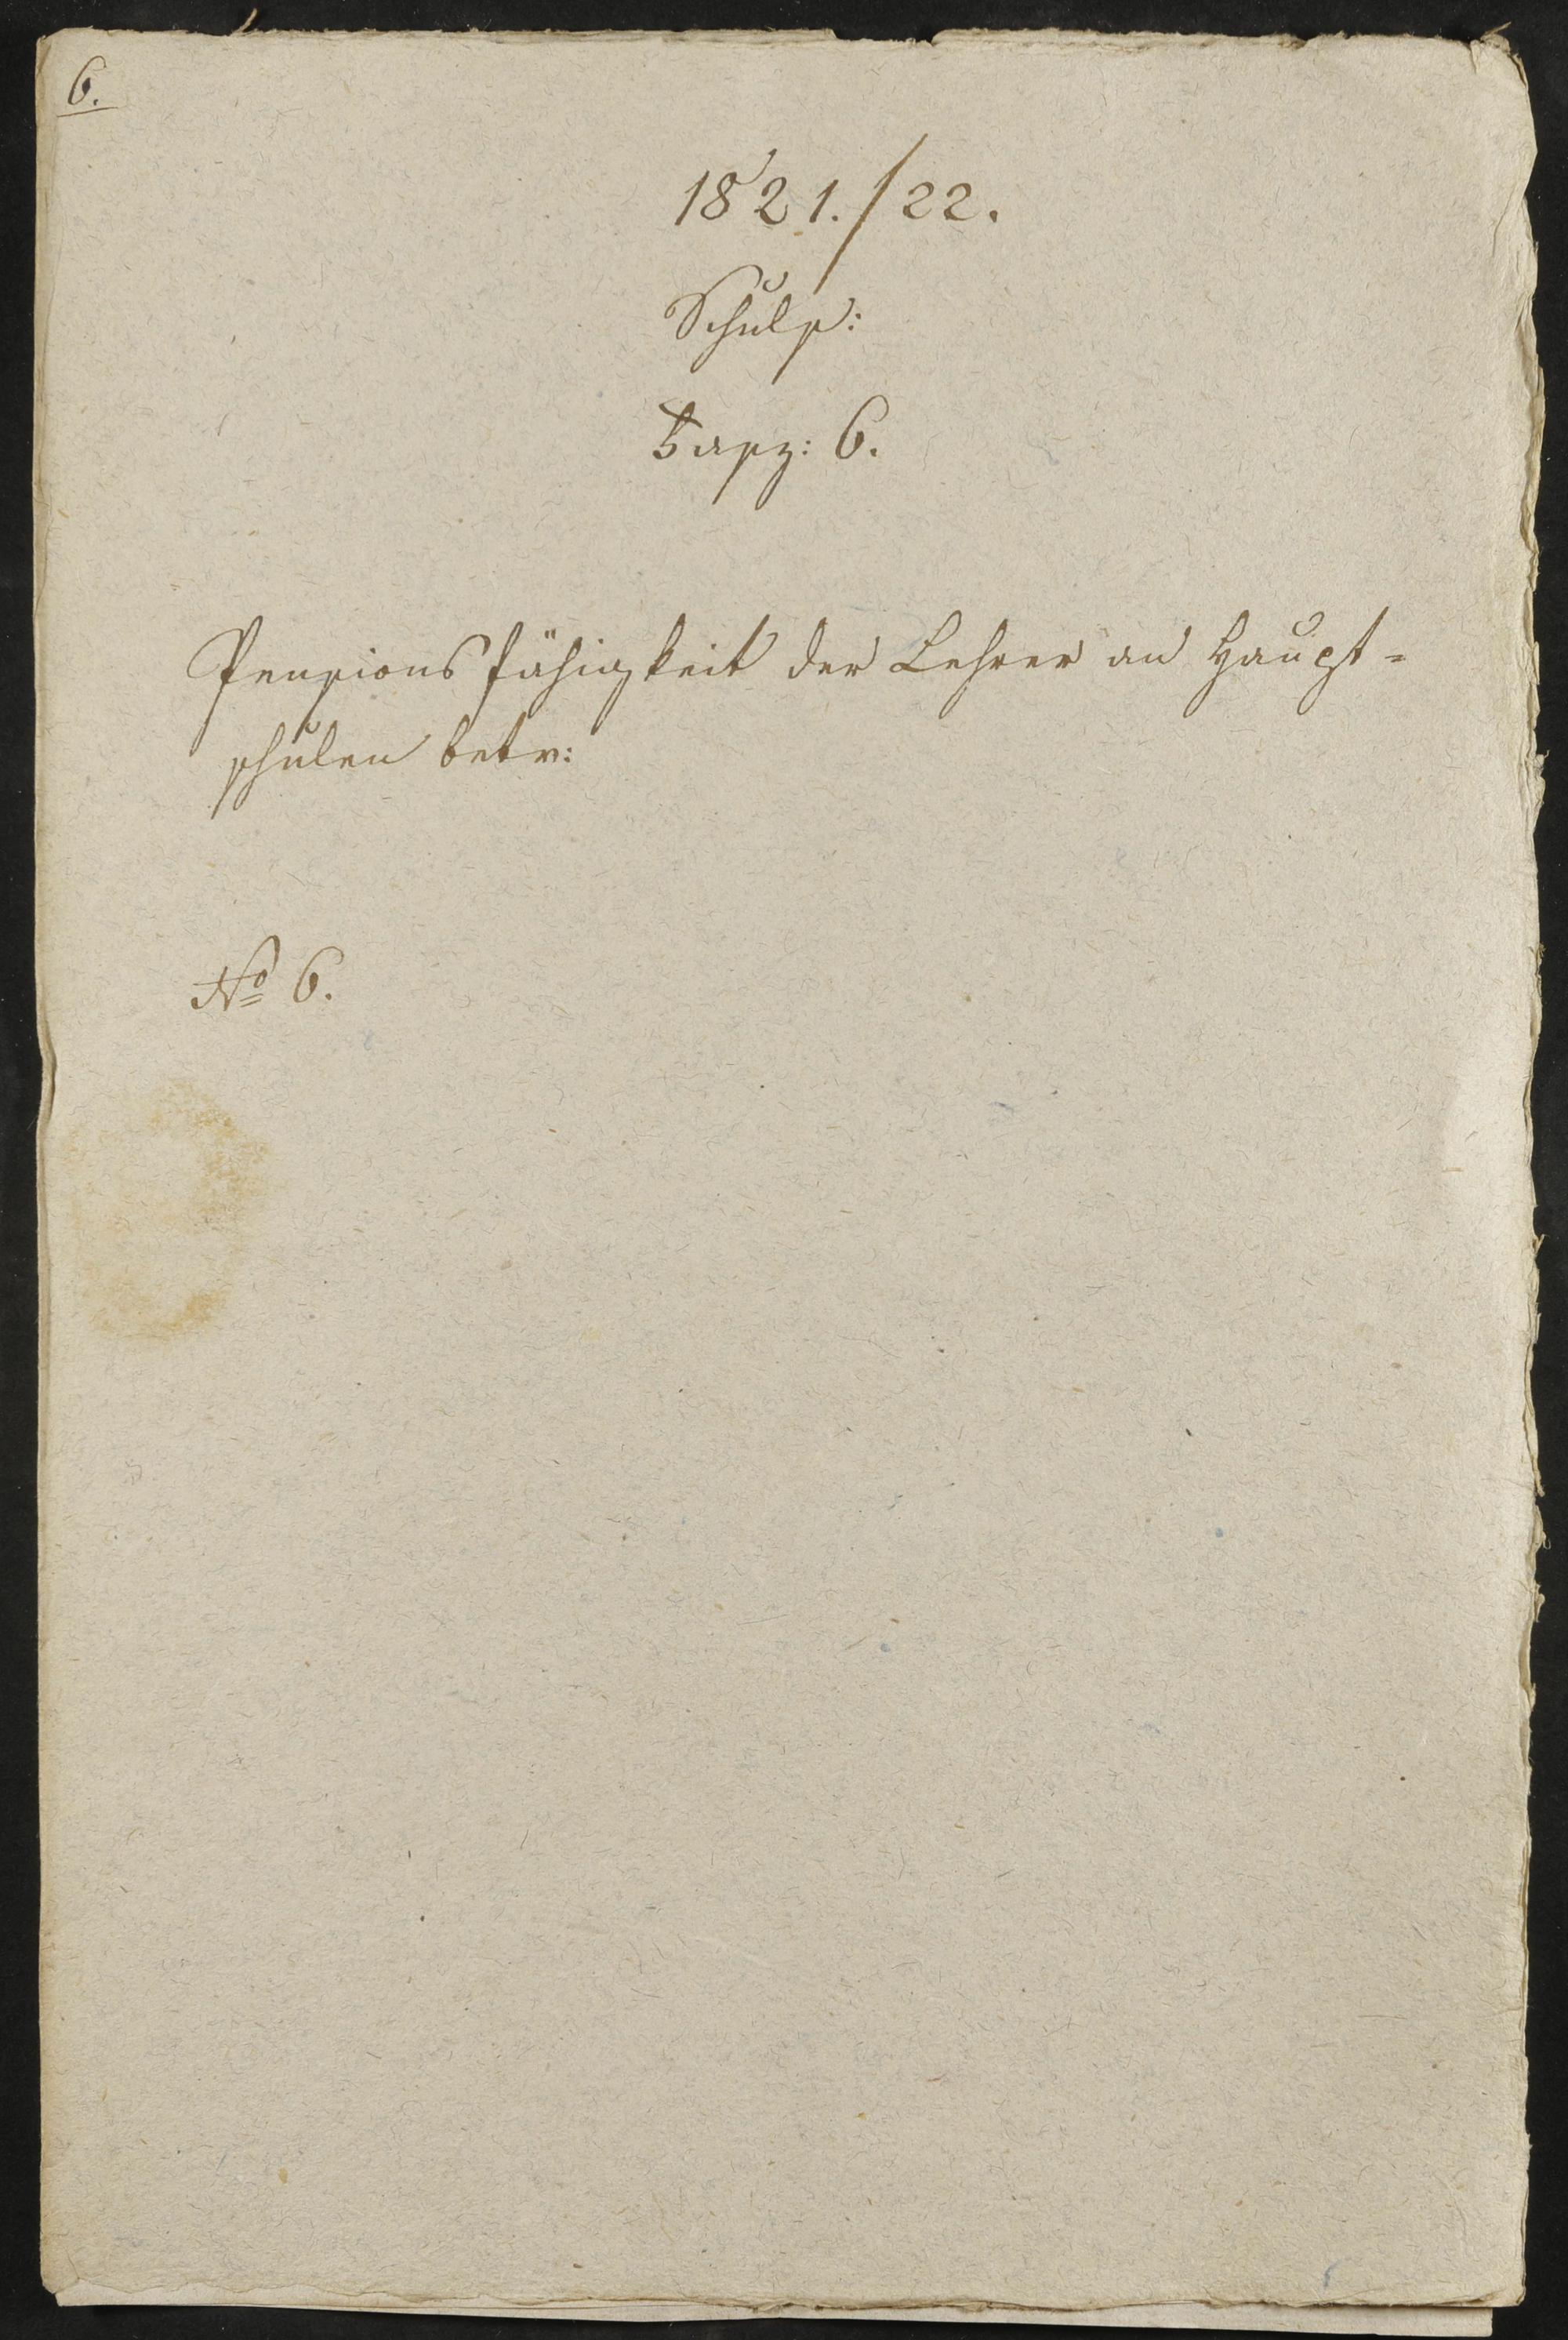 6.
1821./22.
Schuls:
Fasz: 6.
Pensionsfähigkeit der Lehrer an Haupt=
schulen betr:
No 6.